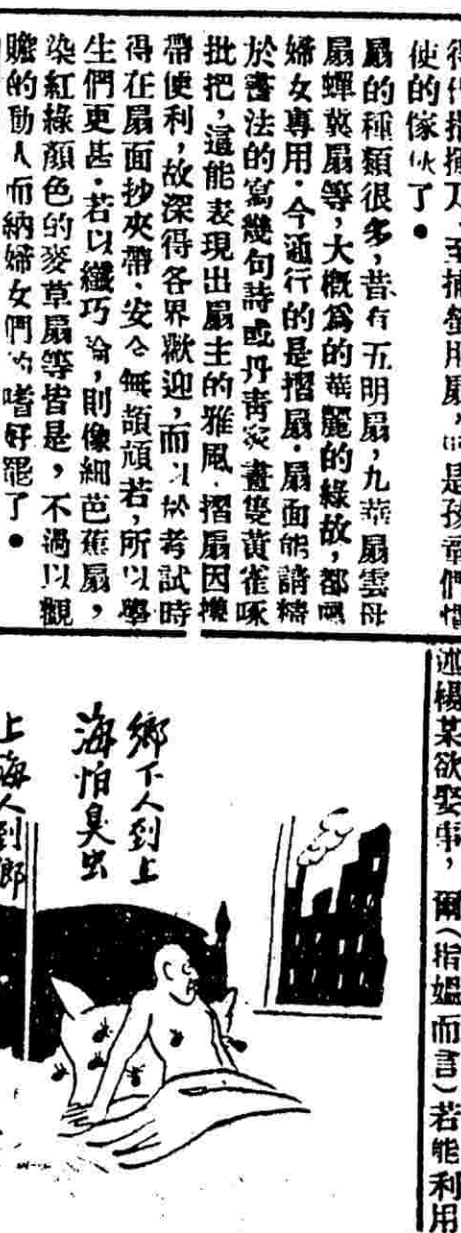 使的傢伙了．
扇的種類很多，昔有五明扇，九華扇雲母
扇蟬翼扇等，大概爲的華麗的緣故，都
婦女專用．今通行的是摺扇．扇面能請精
於書法的寫幾句詩或丹靑家畫隻黃雀啄
批把，這能表現出扇主的雅風．摺扇因攜
帶便利，故深得各界歡迎，而以於考試時
得在扇面抄夾帶．安全無顏頏若，所以學
生們更甚．若以纖巧論，則像細芭蕉扇，
染紅綠顏色的麥草扇等皆是，不過以觀
瞻的動人而納婦女們的嗜好罷了．
述楊某欲娶事，爾（指嫗而言）若能利用
鄉下人到上
海怕臭虫
上海人到鄉